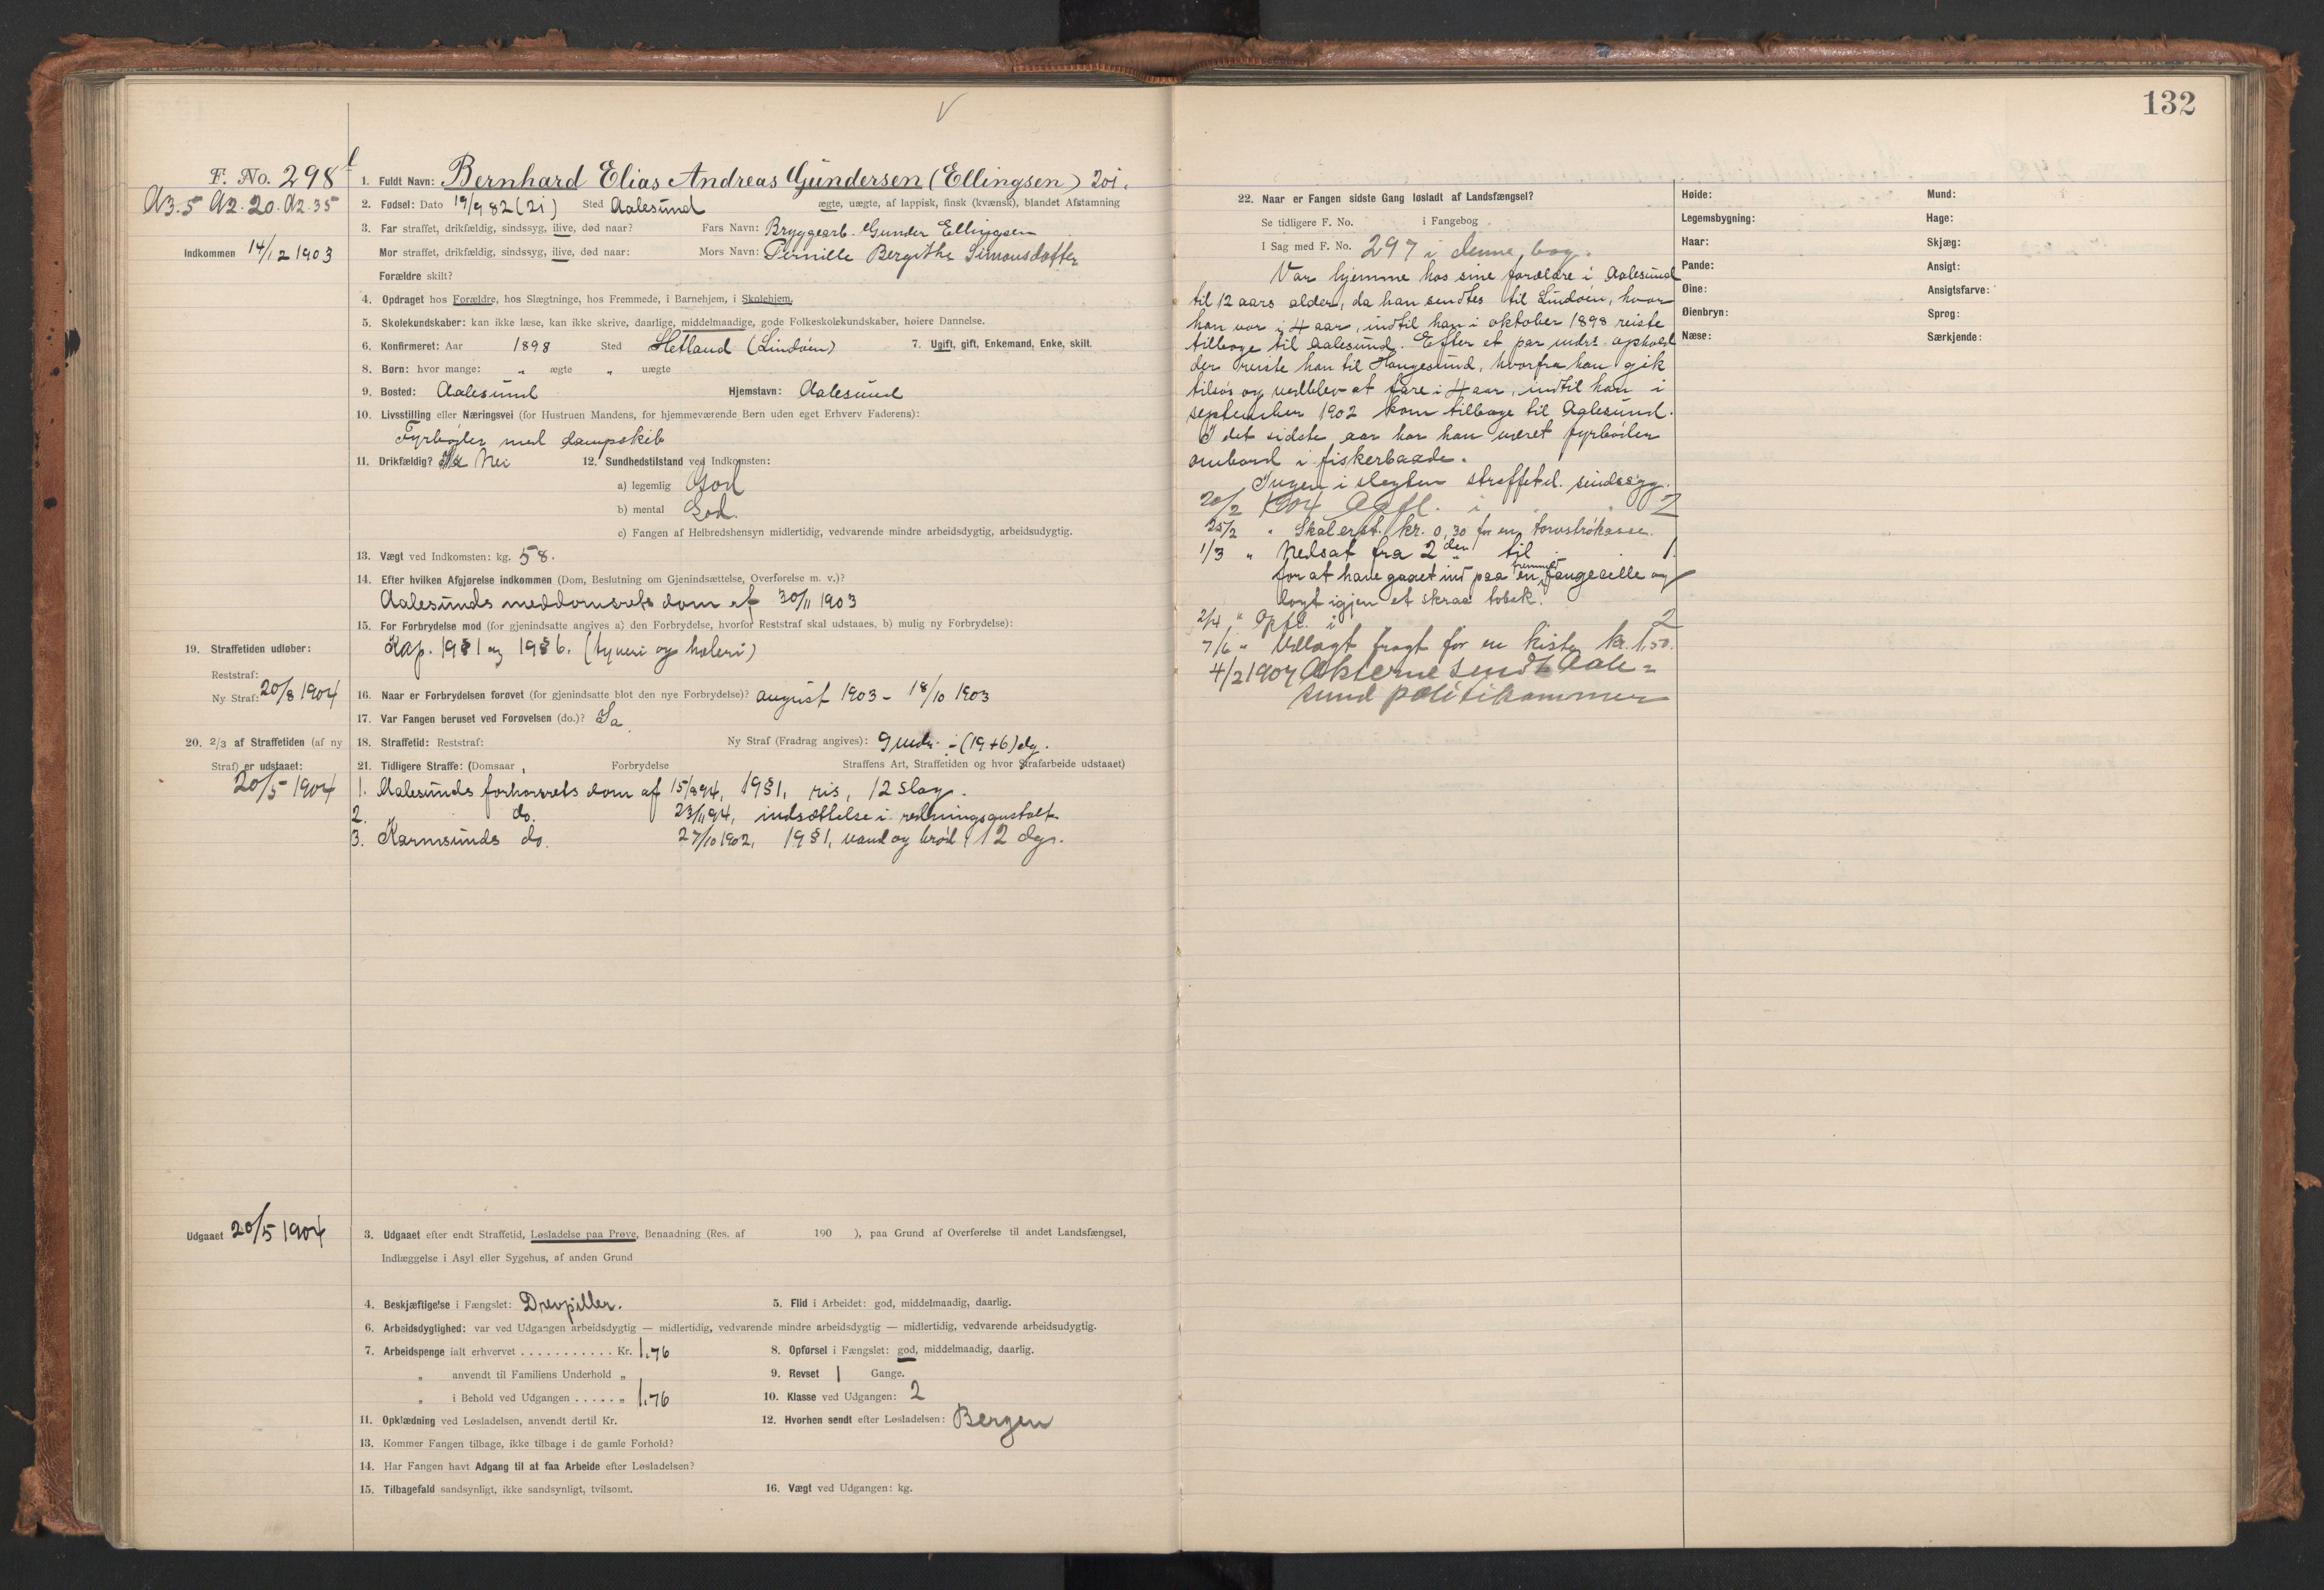 132
F. No. 298
A3.5 A2.20. A2.35
Indkommen 14/12 1903
1. Fuldt Navn: Bernhard Elias Andreas Gundersen (Ellingsen)
2. Fødsel: Dato 19/9 82 (21) Sted Aalesund ægte, uægte, af lappisk, finsk (kvænsk), blandet Afstamning
3. Far straffet, drikfældig, sindssyg, ilive, død naar? Fars Navn: Bryggearb. Gunder Ellingsen
Mor straffet, drikfældig, sindssyg, ilive, død naar: Mors Navn: Pernille Bergithe Simonsdatter
Forældre skilt?
4. Opdraget hos Forældre, hos Slægtninge, hos Fremmede, i Barnehjem, i Skolehjem.
5. Skolekundskaber: kan ikke læse, kan ikke skrive, daarlige, middelmaadige, gode Folkeskolekundskaber, høiere Dannelse.
6. Konfirmeret: Aar 1898 Sted Hetland (Lindøen) 7. Ugift, gift, Enkemand, Enke, skilt.
8. Børn: hvor mange: " ægte " uægte
9. Bosted: Aalesund Hjemstavn: Aalesund
10. Livsstilling eller Næringsvei (for Hustruen Mandens, for hjemmeværende Børn uden eget Erhverv Faderens):
Fyrbøder med dampskib
11. Drikfældig? Nei 12. Sundhedstilstand ved Indkomsten:
a) legemlig God
b) mental God.
c) Fangen af Helbredshensyn midlertidig, vedvarende mindre arbeidsdygtig, arbeidsudygtig.
13. Vægt ved Indkomsten: kg. 58.
14. Efter hvilken Afgjørelse indkommen (Dom, Beslutning om Gjenindsættelse, Overførelse m. v.)?
Aalesunds meddomsrets dom af 30/11 1903
15. For Forbrydelse mod (for gjenindsatte angives a) den Forbrydelse, hvorfor Reststraf skal udstaaes, b) mulig ny Forbrydelse):
Kap. 19§1 og 19§6. (tyveri og hæleri)
19. Straffetiden udløber:
Reststraf:
Ny Straf: 20/8 1904
16. Naar er Forbrydelsen forøvet (for gjenindsatte blot den nye Forbrydelse)? august 1903 - 18/10 1903
17. Var Fangen beruset ved Forøvelsen (do.)? Ja
20. 2/3 af Straffetiden (af ny
Straf) er udstaaet:
20/5 1904
18. Straffetid: Reststraf: Ny Straf (Fradrag angives): 9 mdr. ÷ (19+6) dg.
21. Tidligere Straffe: (Domsaar, Forbrydelse Straffens Art, Straffetiden og hvor Strafarbeide udstaaet)
1. Aalesunds forhørsrets dom af 15/8 94, 19§1, ris, 12 slag.
2. do. 23/11 94, indsættelse i redningsanstalt
3. Karmsunds do. 27/10 1902, 19§1, vand og brød i 12 dgr.
Udgaaet 20/5 1904
3. Udgaaet efter endt Straffetid, Løsladelse paa Prøve, Benaadning (Res. af 190 ), paa Grund af Overførelse til andet Landsfængsel,
Indlæggelse i Asyl eller Sygehus, af anden Grund
4. Beskjæftigelse i Fængslet: Drevpiller. 5. Flid i Arbeidet: god, middelmaadig, daarlig.
6. Arbeidsdygtighed: var ved Udgangen arbeidsdygtig — midlertidig, vedvarende mindre arbeidsdygtig — midlertidig, vedvarende arbeidsudygtig.
7. Arbeidspenge ialt erhvervet ........... Kr. 1.76 8. Opførsel i Fængslet: god, middelmaadig, daarlig.
" anvendt til Familiens Underhold " 9. Revset 1 Gange.
" i Behold ved Udgangen ..... " 1.76 10. Klasse ved Udgangen: 2
11. Opklædning ved Løsladelsen, anvendt dertil Kr. 12. Hvorhen sendt efter Løsladelsen: Bergen
13. Kommer Fangen tilbage, ikke tilbage i de gamle Forhold?
14. Har Fangen havt Adgang til at faa Arbeide efter Løsladelsen?
15. Tilbagefald sandsynligt, ikke sandsynligt, tvilsomt. 16. Vægt ved Udgangen: kg.
22. Naar er Fangen sidste Gang løsladt af Landsfængsel?
Se tidligere F. No. i Fangebog
I Sag med F. No. 297 i denne bog.
Var hjemme hos sine forældre i Aalesund
til 12 aars alder, da han sendtes til Lindøen, hvor
han var i 4 aar, indtil han i oktober 1898 reiste
tilbage til Aalesund. Efter et par mdrs. ophold
der reiste han til Haugesund, hvorfra han gik
tilsjøs og vedblev at fare i 4 aar, indtil han i
september 1902 kom tilbage til Aalesund.
I det sidste aar har han været fyrbøder
ombord i fiskerbaade.
Ingen i slegten straffet el. sindssyg.
20/2 1904 Opfl. i 2
25/2 " Skal erst. kr. 0,30 for en
1/3 " Nedsat fra 2den til 1.
for at have gaaet ind paa en fremmed fangecelle og
lagt igjen et skraa tobak.
2/4 " Opfl. i 2
7/6 " Udlagt fragt for en kiste kr. 1,50.
4/2 1907 Akterne sendt Aale=
sund politikammer
Høide:
Legemsbygning:
Haar:
Pande:
Øine:
Øienbryn:
Næse:
Mund:
Hage:
Skjæg:
Ansigt:
Ansigtsfarve:
Sprog:
Særkjende: